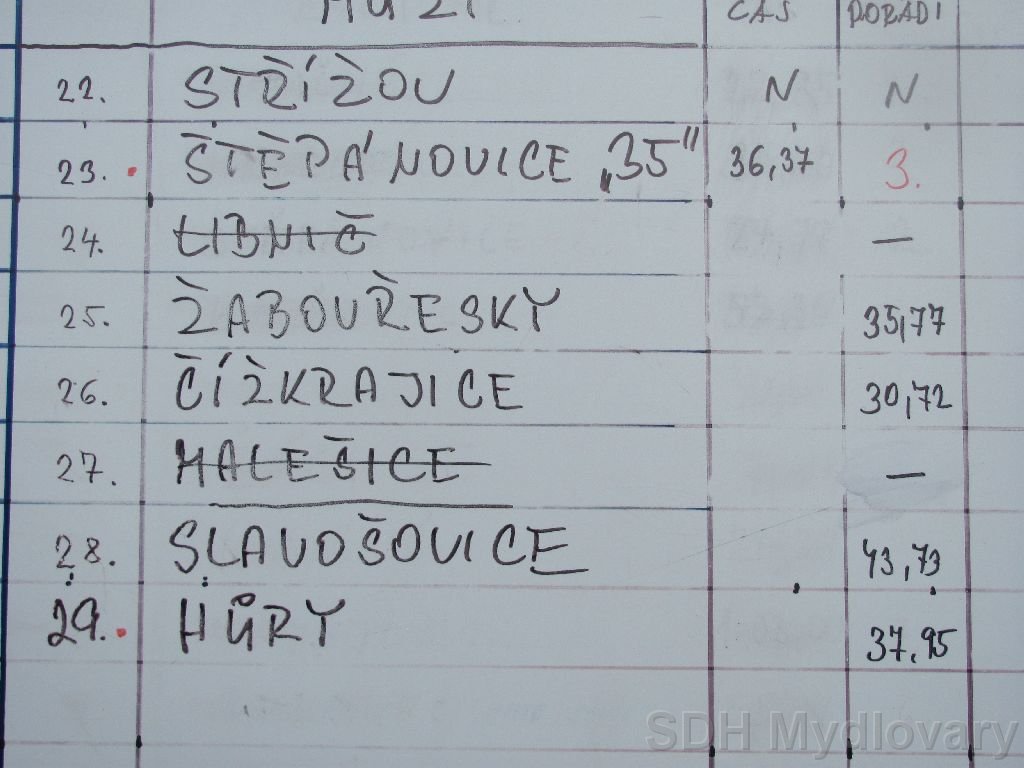 MUŽI ČAS POŘADÍ
22. STŘÍŽOV N N
23. ŠTĚPÁNOVICE „35" 36,37 3.
24. LIBNIČ —
25. ŽABOVŘESKY 35,77
26. ČÍŽKRAJICE 30,72
27. MALEŠICE —
28. SLAVOŠOVICE 43,73
29. HŮRY 37,95
SDH Mydlovary